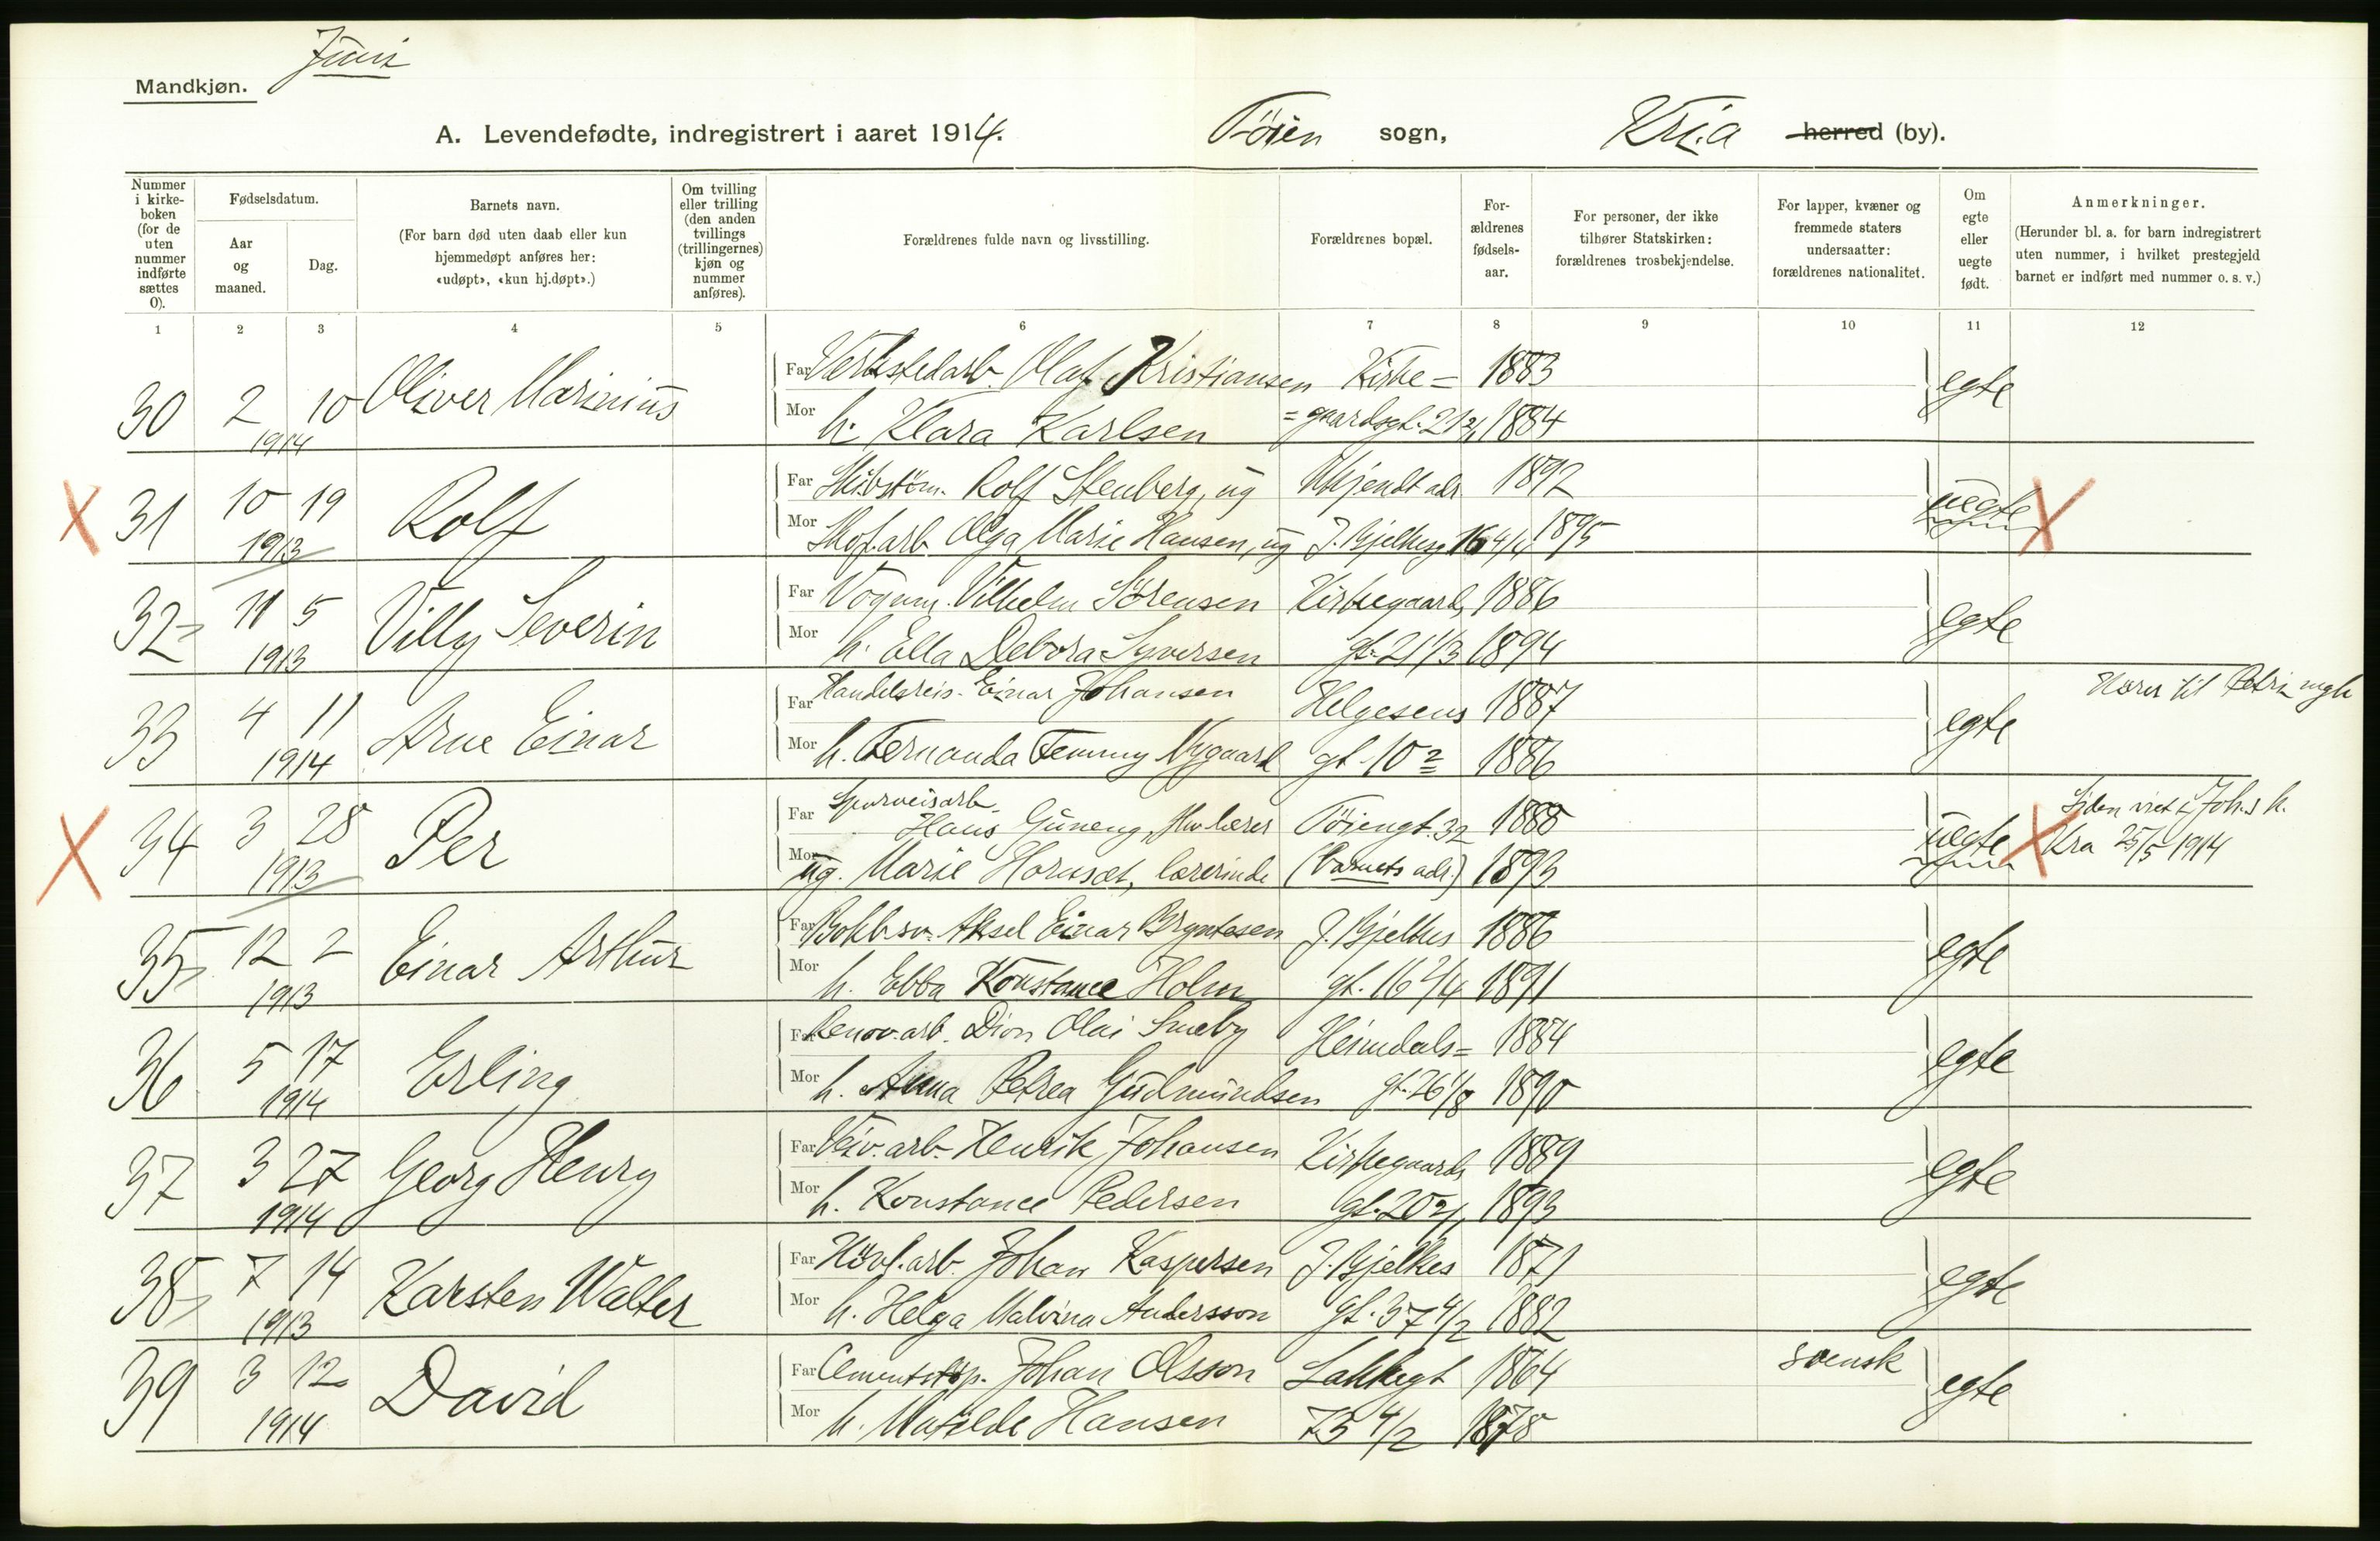 Juni
Mandkjøn.
A. Levendefødte, indregistrert i aaret 1914. Töien sogn, Kr.a herred (by).
Nummer i kirke-boken (for de uten nummer indførte sættes 0).
Fødselsdatum.
Aar og maaned.
Dag.
Barnets navn.
(For barn død uten daab eller kun hjemmedøpt anføres her: «udøpt», «kun hj.døpt».)
Om tvilling eller trilling (den anden tvillings (trillingernes) kjøn og nummer anføres).
Forældrenes fulde navn og livsstilling.
Forældrenes bopæl.
For-ældrenes fødsels-aar.
For personer, der ikke tilhører Statskirken: forældrenes trosbekjendelse.
For lapper, kvæner og fremmede staters undersaatter: forældrenes nationalitet.
Om egte eller uegte født.
Anmerkninger.
(Herunder bl. a. for barn indregistrert uten nummer, i hvilket prestegjeld barnet er indført med nummer o. s. v.)
1 2 3 4 5 6 7 8 9 10 11 12
Far Verkstedarb. Olaf Kristiansen Kirke= 1883
30 2 10 Oliver Marinius egte
1914 Mor h. Klara Karlsen =gaardsgt. 21 1884
Far Rolf Stenberg, ug Ukjendt adr. 1892
X 31 10 19 Rolf uegte X
1913 Mor Olga Marie Hansen, ug J. Bjelkesg 16 4/4 1895
Far Vognm. Vilhelm Sörensen Kirkegaards 1886
32 11 5 Villy Severin egte
1913 Mor h. Ella Debora Syversen gt. 21 1/3 1894
Far Handelsreis. Einar Johansen Helgesens 1887
33 4 11 Arne Einar egte
1914 Mor h. Fernanda Nygaard gt. 10 2 1886
Hører til Petri mgh
Far Sporveisarb.
Hans Töiengt. 32 1888
X 34 3 28 Per uegte X
1913 Mor ug. Marie lærerinde (Barnets adr.) 1893
Siden viet i Joh.s k.
Kra 25/5 1914
Far Aksel Einar Bryntesen J. Bjelkes 1886
35 12 2 Einar Arthur egte
1913 Mor h. Ebba Konstance Holm gt. 16 2/4 1891
Far Renov.arb. Dion Olai Smeby Heimdals= 1884
36 5 17 Erling egte
1914 Mor h. Anna Petrea Gudmundsen gt. 26 1/8 1890
Far Veiv.arb. Henrik Johansen Kirkegaards 1889
37 3 27 Georg Henry egte
1914 Mor h. Konstance Pedersen gt. 20 1893
Far Høvl.arb. Johan Kaspersen J. Bjelkes 1871
38 7 14 Karsten Walter egte
1913 Mor h. Helga Malvina Andersson gt. 37 4/2 1882
Far Johan Olsson Lakkegt 1864 svensk
39 3 12 David egte
1914 Mor h. Matilde Hansen 73 4/2 1878